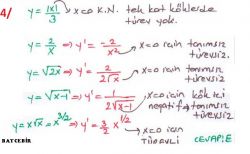 4/ y = |x|/3 ⇒ x=0 K.N. tek kat köklerde türev yok.
y = -2/x ⇒ y' = -2/x² ⇒ x=0 için tanımsız türevsiz.
y = √2x ⇒ y' = 2/2√x ⇒ x=0 için tanımsız türevsiz.
y = √x-1 ⇒ y' = 1/2√x-1 ⇒ x=0 için kök içi negatif → tanımsız türevsiz
y = x√x = x^3/2 ⇒ y' = 3/2 x^1/2 ⇒ x=0 için TÜREVLİ CEVAP: E
BATCEBİR